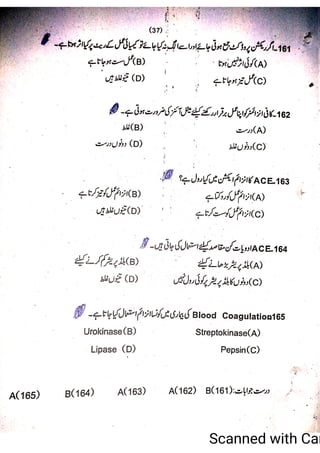 (37)
161-اگر ریکشن پروڈکٹ جمع ہوتی جائے اور اسے الگ نہ کیا جائے تو کیمیائی عمل کے ریٹ پر کیا اثر ہوتا ہے۔
(A)کوئی اثر نہیں ہوتا (B)عمل سست ہو جاتا ہے
(C)عمل تیز ہو جاتا ہے (D)تینوں غلط ہیں
162-کافی انزائمز کو اپنا عمل برقرار رکھنے کیلئے میٹل آئنز کی ضرورت ہوتی ہے۔
(A)درست (B)غلط
(C)دونوں غلط (D)دونوں درست
163-ACE کا انزائم ایکشن میں کیا رول ہے؟
(A)انزائم عمل کو روکتا ہے (B)انزائم عمل کو تیز کرتا ہے
(C)انزائم عمل کو سست کرتا ہے (D)تینوں غلط ہیں
164-ACE ادویات کن مقاصد کیلئے استعمال کی جاتی ہیں۔
(A)بلڈ پریشر بڑھانے کیلئے (B)بلڈ پریشر کم کرنے کیلئے
(C)دونوں کا بلڈ پریشر پر کوئی رول نہیں (D)تینوں غلط
165 Blood Coagulation کی بیماری میں کونسا انزائم استعمال کیا جاتا ہے۔
Streptokinase(A) Urokinase(B)
Pepsin(C) Lipase (D)
درست جوابات: B(161) A(162) A(163) B(164) A(165)
Scanned with Ca